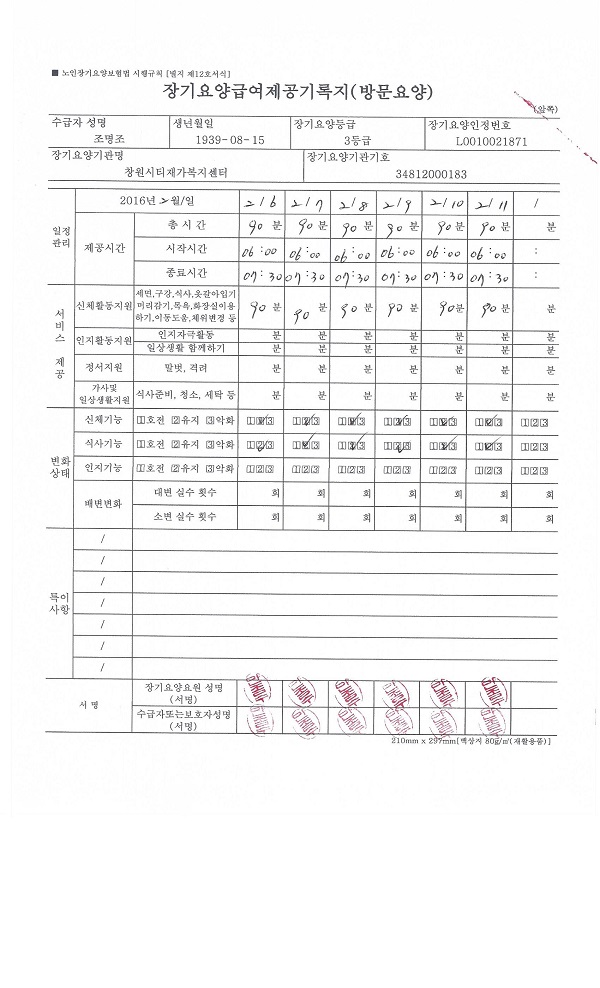 ■ 노인장기요양보험법 시행규칙 [별지 제12호서식]
장기요양급여제공기록지(방문요양)
(앞쪽)
수급자 성명 생년월일 장기요양등급 장기요양인정번호
조명조 1939-08-15 3등급 L0010021871
장기요양기관명 장기요양기관기호
창원시티재가복지센터 34812000183
일정관리 2016년 2월/일 2/6 2/7 2/8 2/9 2/10 2/11 /
제공시간 총 시 간 90 분 90 분 90 분 90 분 90 분 90 분 분
시작시간 06:00 06:00 06:00 06:00 06:00 06:00 :
종료시간 07:30 07:30 07:30 07:30 07:30 07:30 :
서비스 제공
신체활동지원 세면,구강,식사,옷갈아입기
머리감기,목욕,화장실이용
하기,이동도움,체위변경 등 90 분 90 분 90 분 90 분 90 분 90 분 분
인지활동지원 인지자극활동 분 분 분 분 분 분 분
일상생활 함께하기 분 분 분 분 분 분 분
정서지원 말벗, 격려 분 분 분 분 분 분 분
가사및
일상생활지원 식사준비, 청소, 세탁 등 분 분 분 분 분 분 분
변화상태
신체기능 1호전 2유지 3악화 123 123 123 123 123 123 123
식사기능 1호전 2유지 3악화 123 123 123 123 123 123 123
인지기능 1호전 2유지 3악화 123 123 123 123 123 123 123
배변변화 대변 실수 횟수 회 회 회 회 회 회 회
소변 실수 횟수 회 회 회 회 회 회 회
특이사항
/
/
/
/
/
/
/
서 명 장기요양요원 성명
(서명)
수급자또는보호자성명
(서명)
210mm x 297mm[백상지 80g/㎡(재활용품)]